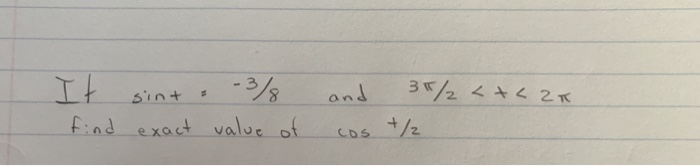 If sint = -3/8 and 3π/2 < t < 2π
find exact value of cos t/2